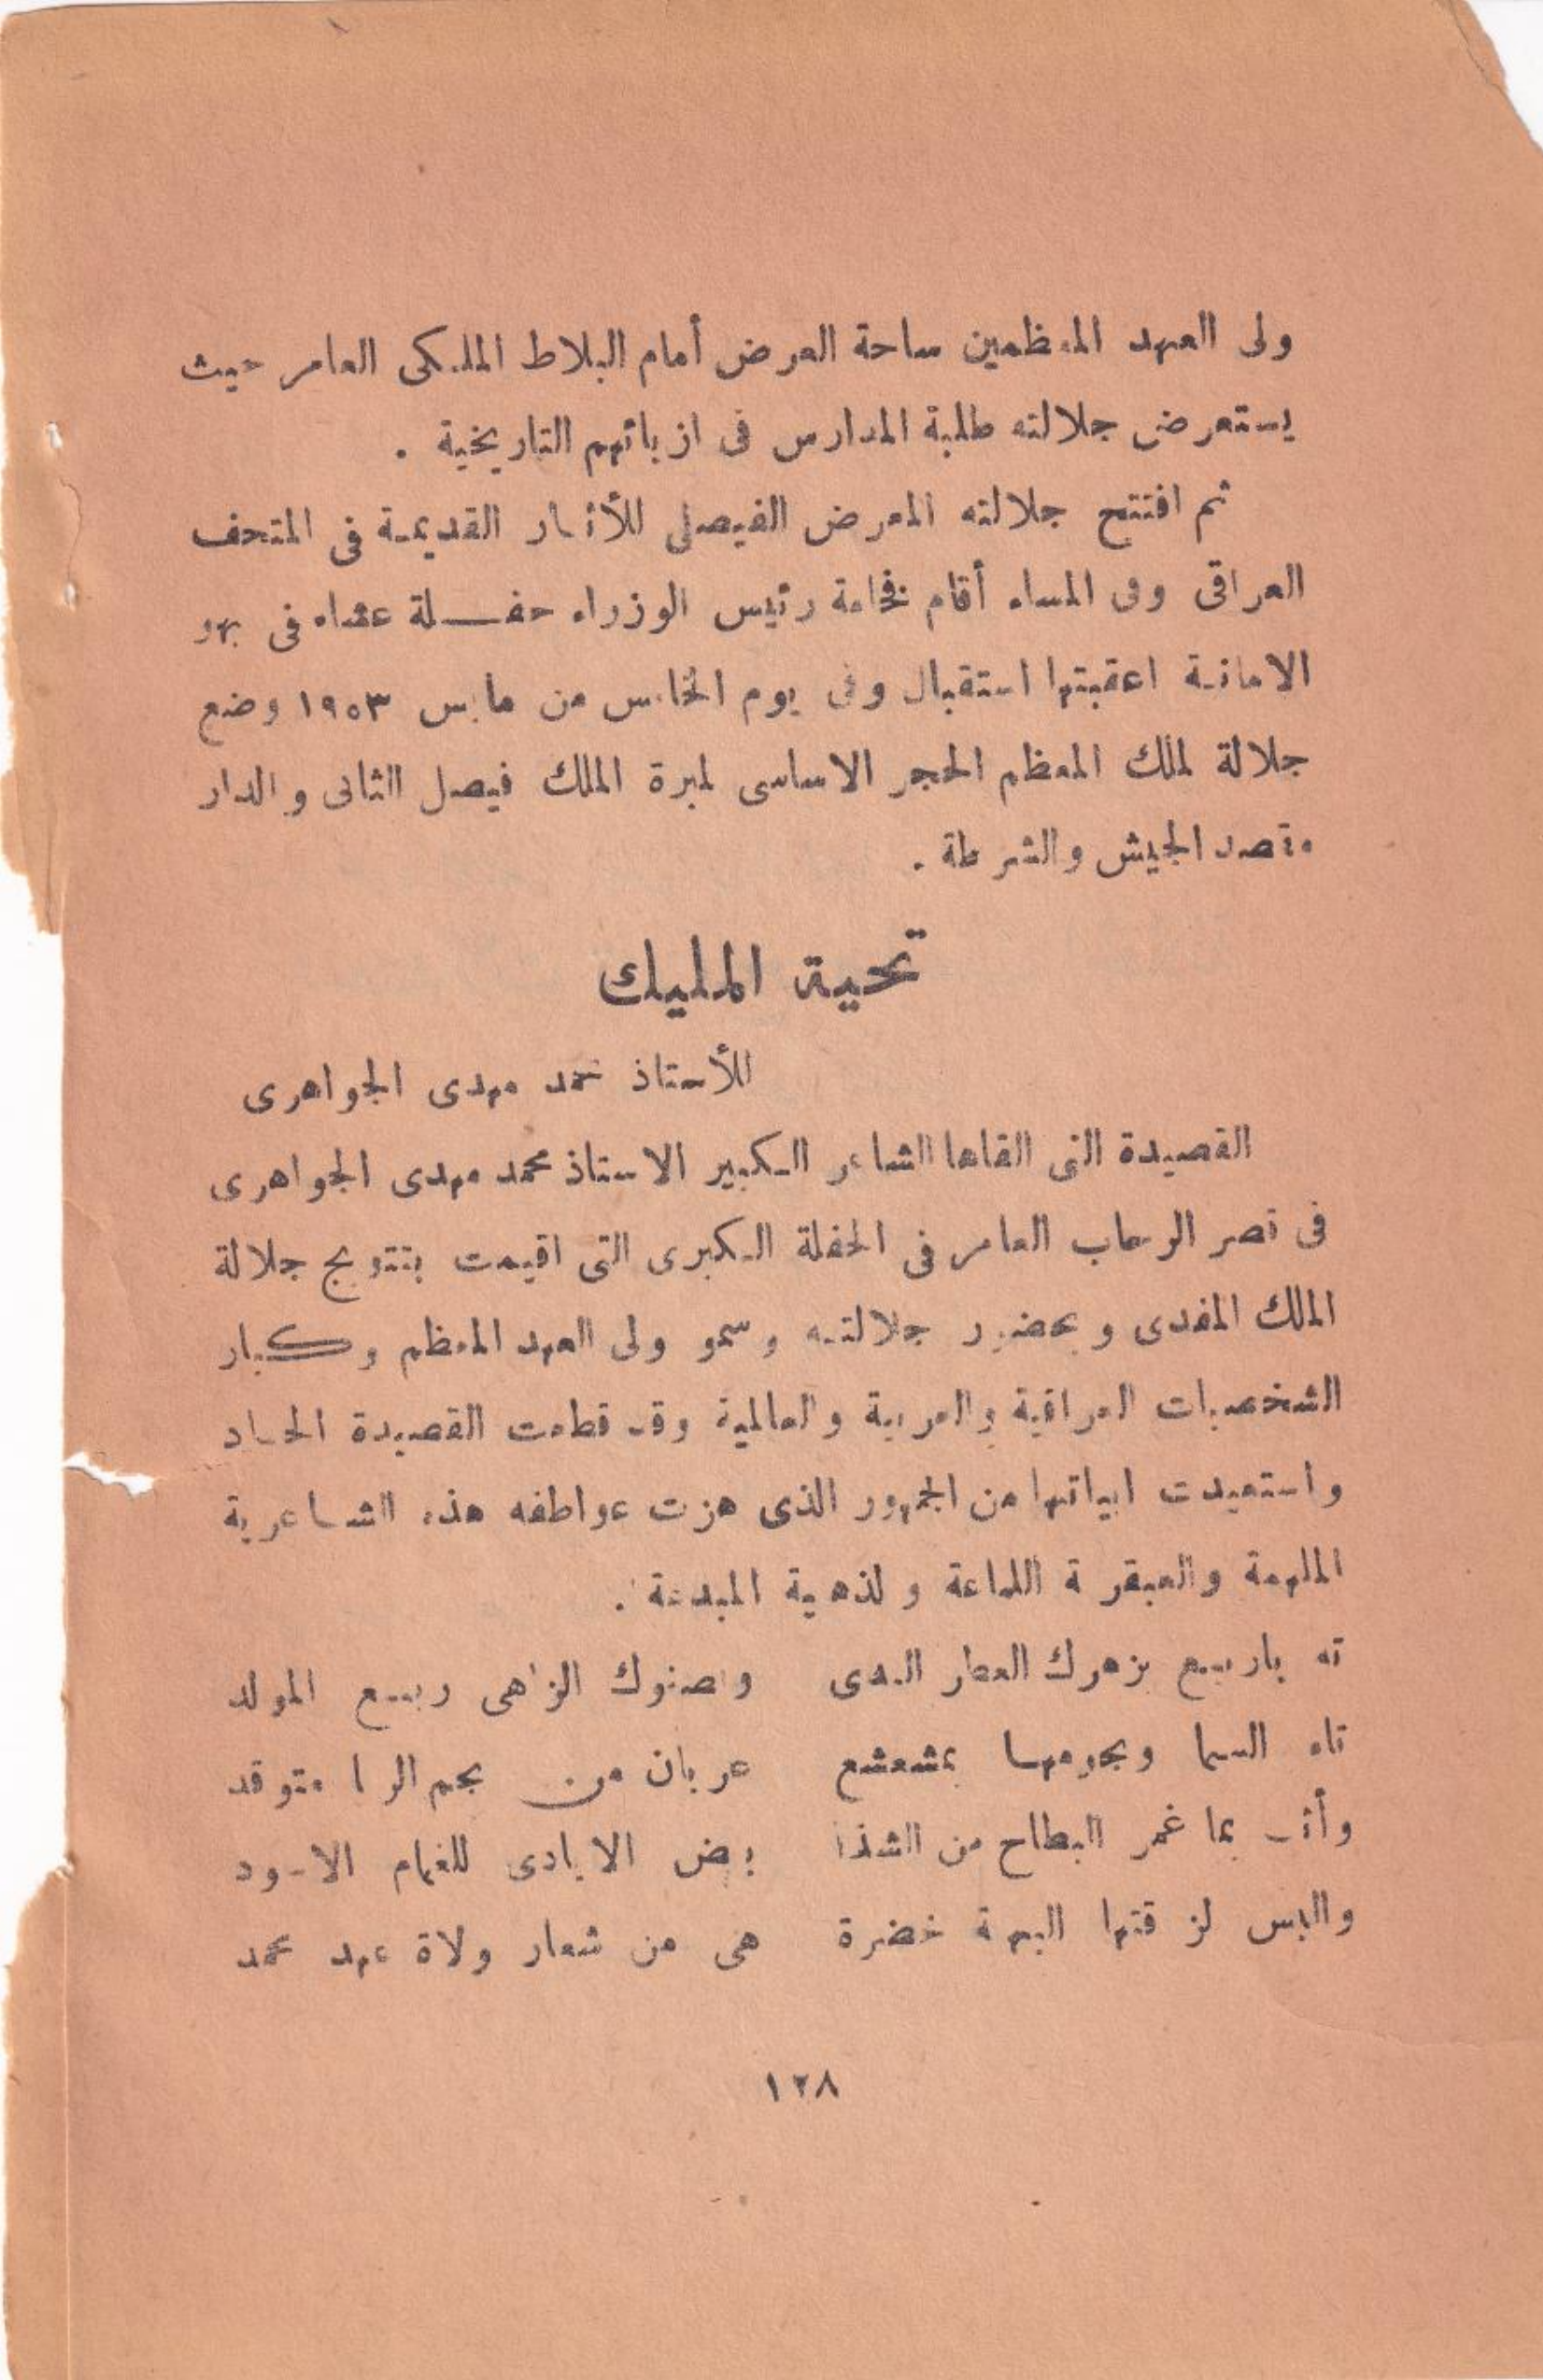 ولى العهد المعظمين ساحة العرض أمام البلاط الملكى العامر حيث
يستعرض جلالته طلبة المدارس فى ازيائهم التاريخية .
ثم افتتح جلالته المعرض الفيصلى للأثار القديمة فى المتحف
العراقى وفى المساء أقام فخامة رئيس الوزراء حفلة عشاء فى بهو
الامانة اعقبتها استقبال وفى يوم الخامس من مايس ١٩٥٣ وضع
جلالة لملك المعظم الحجر الاساسى لمبرة الملك فيصل الثانى والدار
الجيش والشرطة .
تحية المليك
للأستاذ محمد مهدى الجواهرى
القصيدة التى القاها الشاعر الكبير الاستاذ محمد مهدى الجواهرى
فى قصر الرحاب العامر فى الحفلة الكبرى التى اقيمت بتتويج جلالة
الملك المفدى وبحضور جلالته وسمو ولى العهد المعظم وكبار
الشخصيات العراقية والعربية والعالمية وقد قطعت القصيدة
واستعيدت ابياتها من الجمهور الذى هزت عواطفه هذه الشاعرية
الملهمة والعبقرية اللماعة و لذهبية المبدعة .
ته ياربيع بزهرك العطر الندى وبصنوك الزاهى ربيع المولد
تاه السما ونجومها بمشعشع عريان من نجم الربا متوقد
بما غمر البطاح من الشذا بيض الايادى للغمام الاسود
والبس خضرة هى من شعار ولاة عهد محمد
١٢٨